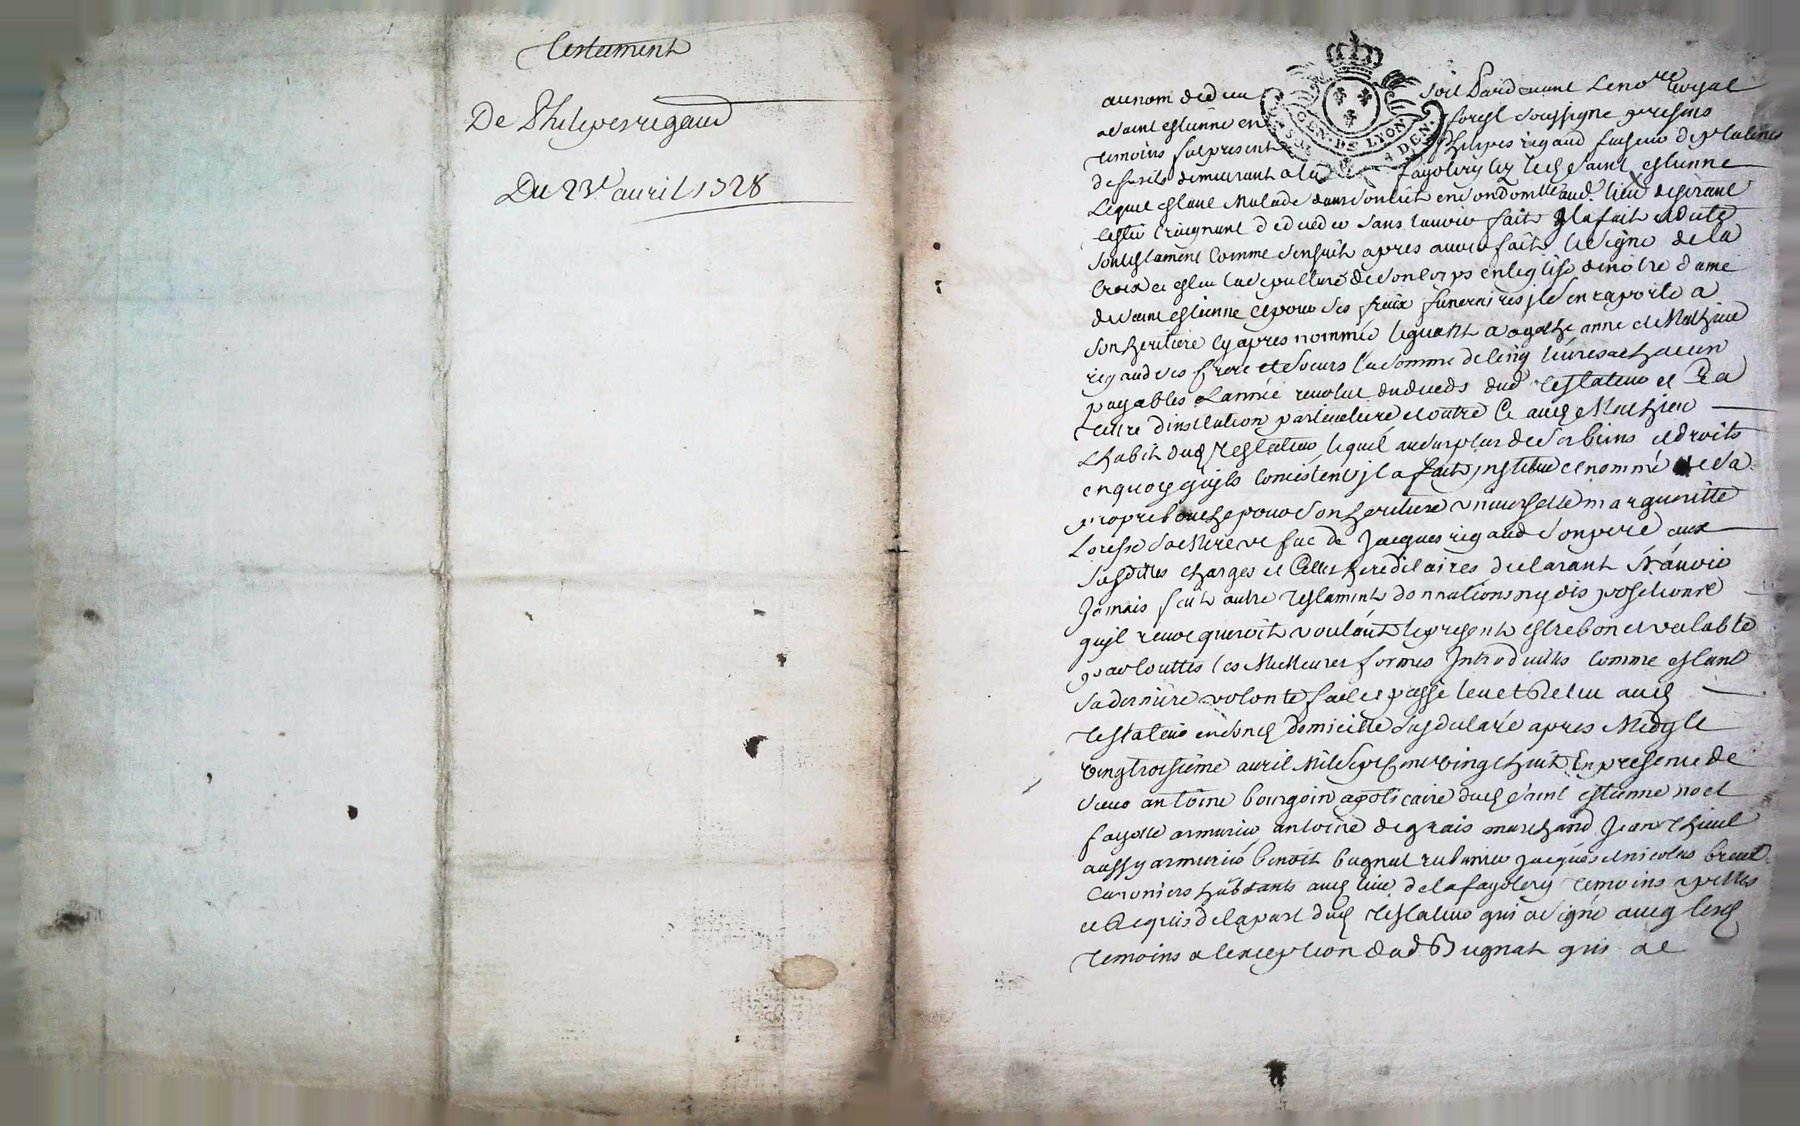 Testament
De Philipes rigaud
Du 23e avril 1728
GEN. DE LYON
4 DEN.
au nom de dieu soit Pardevant Le nore Royal
a saint estienne en forest soussigne presens
temoins fut present Philipes rigaud faiseur de platines
de fusils demeurant a la fayolery lez led saint estienne
Lequel estant Malade dans son lit en son domlle aud. lieu desirant
tester craignant de deceder sans l'avoir fait Il a fait et dicté
son testament comme s'ensuit apres avoir fait le signe de la
Croix et esleu la sepulture de son corps en leglise de notre dame
de saint estienne et pour ses fraix funeraires il s'en raporte a
son heritiere cy apres nommée leguant a agathe anne et Mathieu
rigaud ses frere et soeurs la somme de cinq livres a chacun
payables l'année revolue du deceds dud testateur et Ce a
tiltre d'institution particuliere et outre Ce aud Mathieu
L'habit dud testateur, lequel au surplus de ses biens et droits
en quoy quils consistent il a fait, institué et nommé de sa
propre bouche pour son heritiere universelle margueritte
Loresse sa Mere ve fue de Jacques rigaud son pere aux
susdittes charges et Celles hereditaires declarant n'avoir
Jamais fait autre testament donnations ny dispositions
quil revoqueroit voulant le present estre bon et valable
par touttes les Meilleures formes Introduittes comme estant
sa derniere volonté fait et passé leu et Releu aud
testateur en sond domicille susdeclaré apres Midy le
vingt troisieme avril Mil sept cent vingt huit En presence de
sieur antoine bourgoin apoticaire dud saint estienne noel
fayolle armurier antoine degrais marchand Jean thiuel
aussy armurier benoit bugnat rubanier jacques et nicolas breuil
Canoniers habitants aud lieu de la fayolery temoins apellés
et Requis de la part dud testateur qui a signé avec lesd
temoins a l'exception dud Bugnat qui de